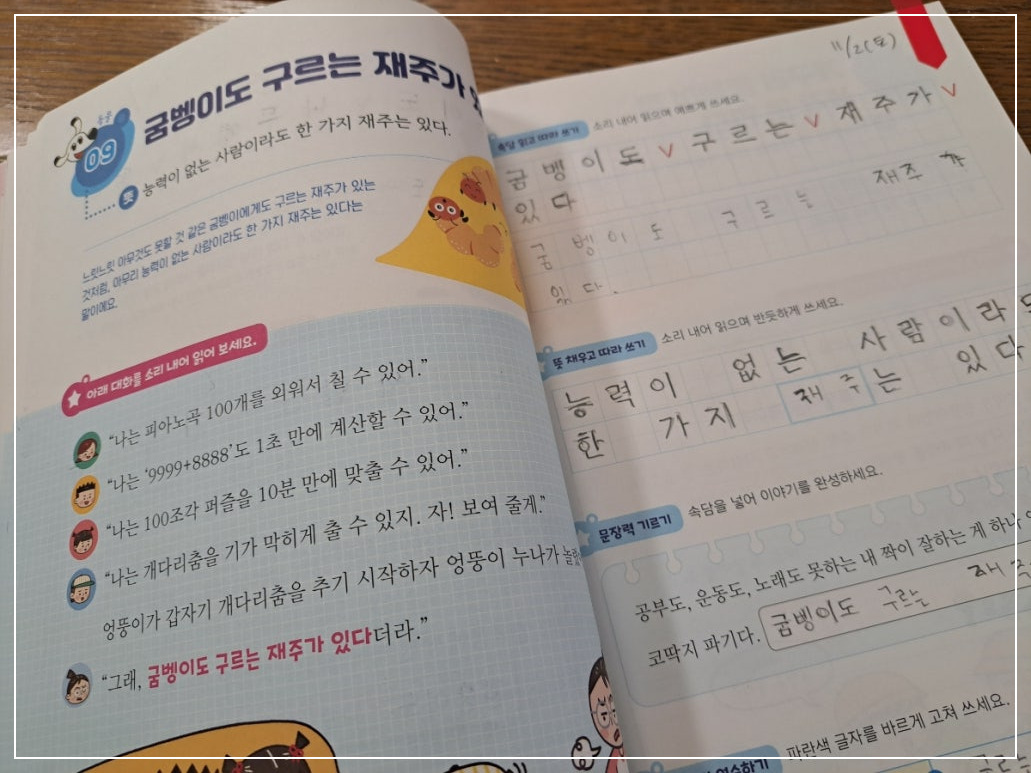 동물
09
굼벵이도 구르는 재주가
뜻 능력이 없는 사람이라도 한 가지 재주는 있다.
느릿느릿 아무것도 못할 것 같은 굼벵이에게도 구르는 재주가 있는
것처럼, 아무리 능력이 없는 사람이라도 한 가지 재주는 있다는
말이에요.
아래 대화를 소리 내어 읽어 보세요.
“나는 피아노곡 100개를 외워서 칠 수 있어.”
“나는 ‘9999+8888’도 1초 만에 계산할 수 있어.”
“나는 100조각 퍼즐을 10분 만에 맞출 수 있어.”
“나는 개다리춤을 기가 막히게 출 수 있지. 자! 보여 줄게.”
엉뚱이가 갑자기 개다리춤을 추기 시작하자 엉뚱이 누나가
“그래, 굼벵이도 구르는 재주가 있다더라.”
11/2(토)
속담 읽고 따라 쓰기 소리 내어 읽으며 예쁘게 쓰세요.
굼벵이도∨구르는∨재주가∨
있다
굼벵이도 구르는 재주가
있다.
뜻 채우고 따라 쓰기 소리 내어 읽으며 반듯하게 쓰세요.
능력이 없는 사람이라도
한 가지 재주는 있다
문장력 기르기 속담을 넣어 이야기를 완성하세요.
공부도, 운동도, 노래도 못하는 내 짝이 잘하는 게 하나
코딱지 파기다. 굼벵이도 구르는 재주
파란색 글자를 바르게 고쳐 쓰세요.